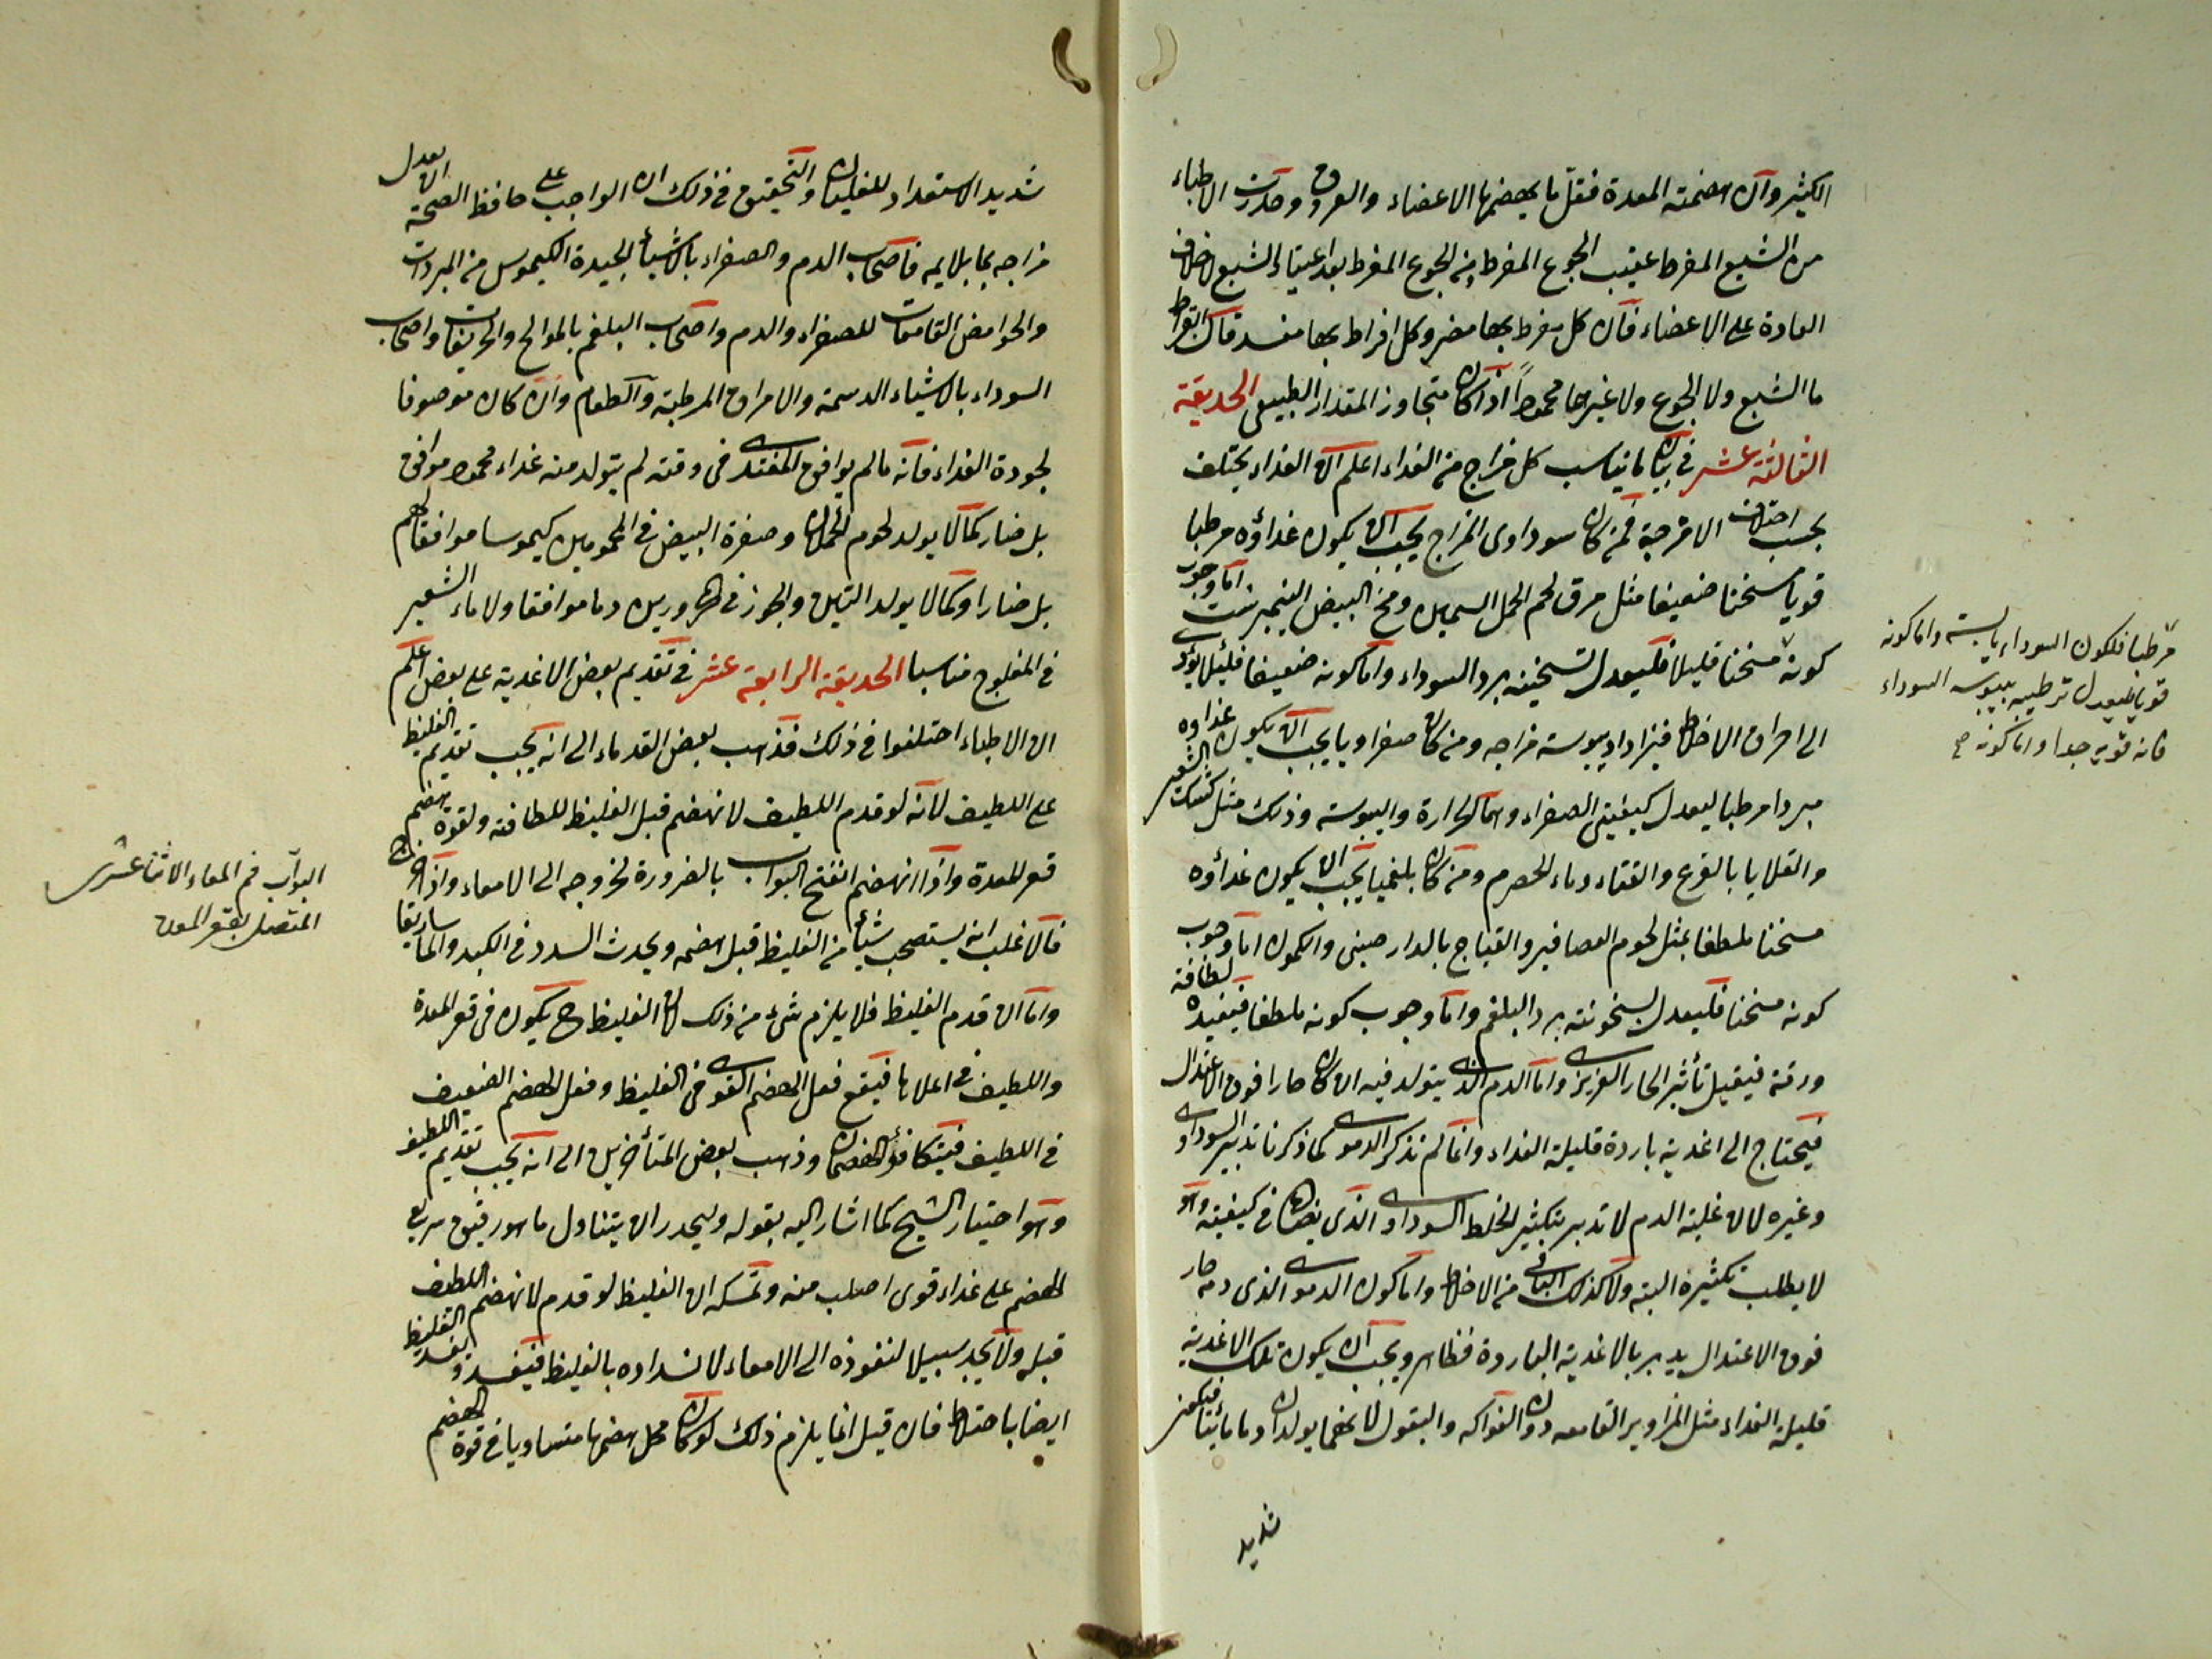 الكثير وان هضمته المعدة فقل ما يهضمها الاعضاء والعروق وحذرت الاطباء
من الشبع المفرط عقيب الجوع المفرط ومن الجوع المفرط بعد اعتياد الشبع
العادة على الاعضاء فان كل مفرط بها مضر وكل افراط بها مفسد قال ابقراط
ما الشبع ولا الجوع ولا غيرهما محمودا اذا كان متجاوز المقدار الطبيعى الحديقة
الثالثة عشر فى بيان ما يناسب كل مزاج من الغذاء اعلم ان الغذاء يختلف
بحسب اختلاف الامزجة فمن كان سوداوى المزاج يجب ان يكون غذاؤه مرطبا
قويا مسخنا ضعيفا مثل مرق لحم الحمل السمين ومخ البيض النيمبرشت اما وجوب
كونه مسخنا قليلا فليعدل تسخينه برد السوداء واما كونه ضعيفا فلئلا يؤدى
الى احراق الاخلاط فيزداد يبوسة مزاجه ومن كان صفراويا يجب ان يكون غذاؤه
مبردا مرطبا ليعدل كيفيتى الصفراء وهما الحرارة واليبوسة وذلك مثل كشك الشعير
والقلايا بالقرع والقثاء وماء الحصرم ومن كان بلغميا يجب ان يكون غذاؤه
مسخنا ملطفا بمثل لحوم العصافير والقباج بالدارصينى والكمون اما وجوب
كونه مسخنا فليعدل بسخونته برد البلغم واما وجوب كونه ملطفا فيفيده لطافة
ورقة فيقبل تأثير الحار الغريزى واما الدم الذى يتولد فيه ان كان حارا فوق الاعتدال
فيحتاج الى اغذية باردة قليلة الغذاء وانما لم نذكر الدموى كما ذكرنا تدبير السوداوى
وغيره لان غلبة الدم لا تدبر بتكثير الخلط السوداوى الذى يضاده فى كيفيته وهو
لا يطلب تكثيره البتة ولا كذلك الباقى من الاخلاط واما كون الدموى الذى دمه حار
فوق الاعتدال يدبر بالاغذية الباردة فظاهر ويجب ان يكون تلك الاغذية
قليلة الغذاء مثل المزاوير القامعه دون الفواكه والبقول لانهما يولدان دما مائيا فيكون
شديد
مرطبا فلكون السوداء يابسة واما كونه
قويا فليعدل ترطيبه بيبوسة السوداء
فانه قوية جدا واما كونه صح
شديد الاستعداد للغليان والتحقيق فى ذلك ان الواجب على حافظ الصحة ان يعدل
مزاجه بما يلايمه فاصحاب الدم والصفراء بالاشياء الجيدة الكيموس من المبردات
والحوامض القامعات للصفراء والدم واصحاب البلغم بالموالح والحريفات واصحاب
السوداء بالاشياء الدسمة والامراق المرطبة والطعام وان كان موصوفا
لجودة الغذاء فانه ما لم يوافق المغتذى فى وقته لم يتولد منه غذاء محمود موافق
بل ضار كما لا يولد لحوم الحملان وصفرة البيض فى المحمومين كيموسا موافقا لهم
بل ضارا وكما لا يولد التين والجوز فى المحرورين دما موافقا ولا ماء الشعير
فى المفلوج مناسبا الحديقة الرابعة عشر فى تقديم بعض الاغذية على بعض اعلم
ان الاطباء اختلفوا فى ذلك فذهب بعض القدماء الى انه يجب تقديم الغليظ
على اللطيف لانه لو قدم اللطيف لانهضم قبل الغليظ للطافته ولقوة هضم
قعر المعدة واذا انهضم انفتح البواب بالضرورة لخروجه الى الامعاء واذا خرج
فالاغلب انه يستصحب شيئا من الغليظ قبل هضمه ويحدث السدد فى الكبد والماساريقا
واما ان قدم الغليظ فلا يلزم شئ من ذلك لان الغليظ ح يكون فى قعر المعدة
واللطيف فى اعلاها فيقع فعل الهضم القوى فى الغليظ وفعل الهضم الضعيف
فى اللطيف فيتكافؤ الهضمان وذهب بعض المتأخرين الى انه يجب تقديم اللطيف
وهو اختيار الشيخ كما اشار اليه بقوله وليحذر ان يتناول ما هو رقيق سريع
الهضم على غذاء قوى اصلب منه وتمسكه ان الغليظ لو قدم لانهضم اللطيف
قبله ولا يجد سبيلا لنفوذه الى الامعاء لانسداده بالغليظ فيفسد ويفسد الغليظ
ايضا باختلاطه فان قيل انما يلزم ذلك لو كان محل هضمها متساويا فى قوة الهضم
البواب فم المعاء الاثنا عشرى
المتصل بقعر المعدة